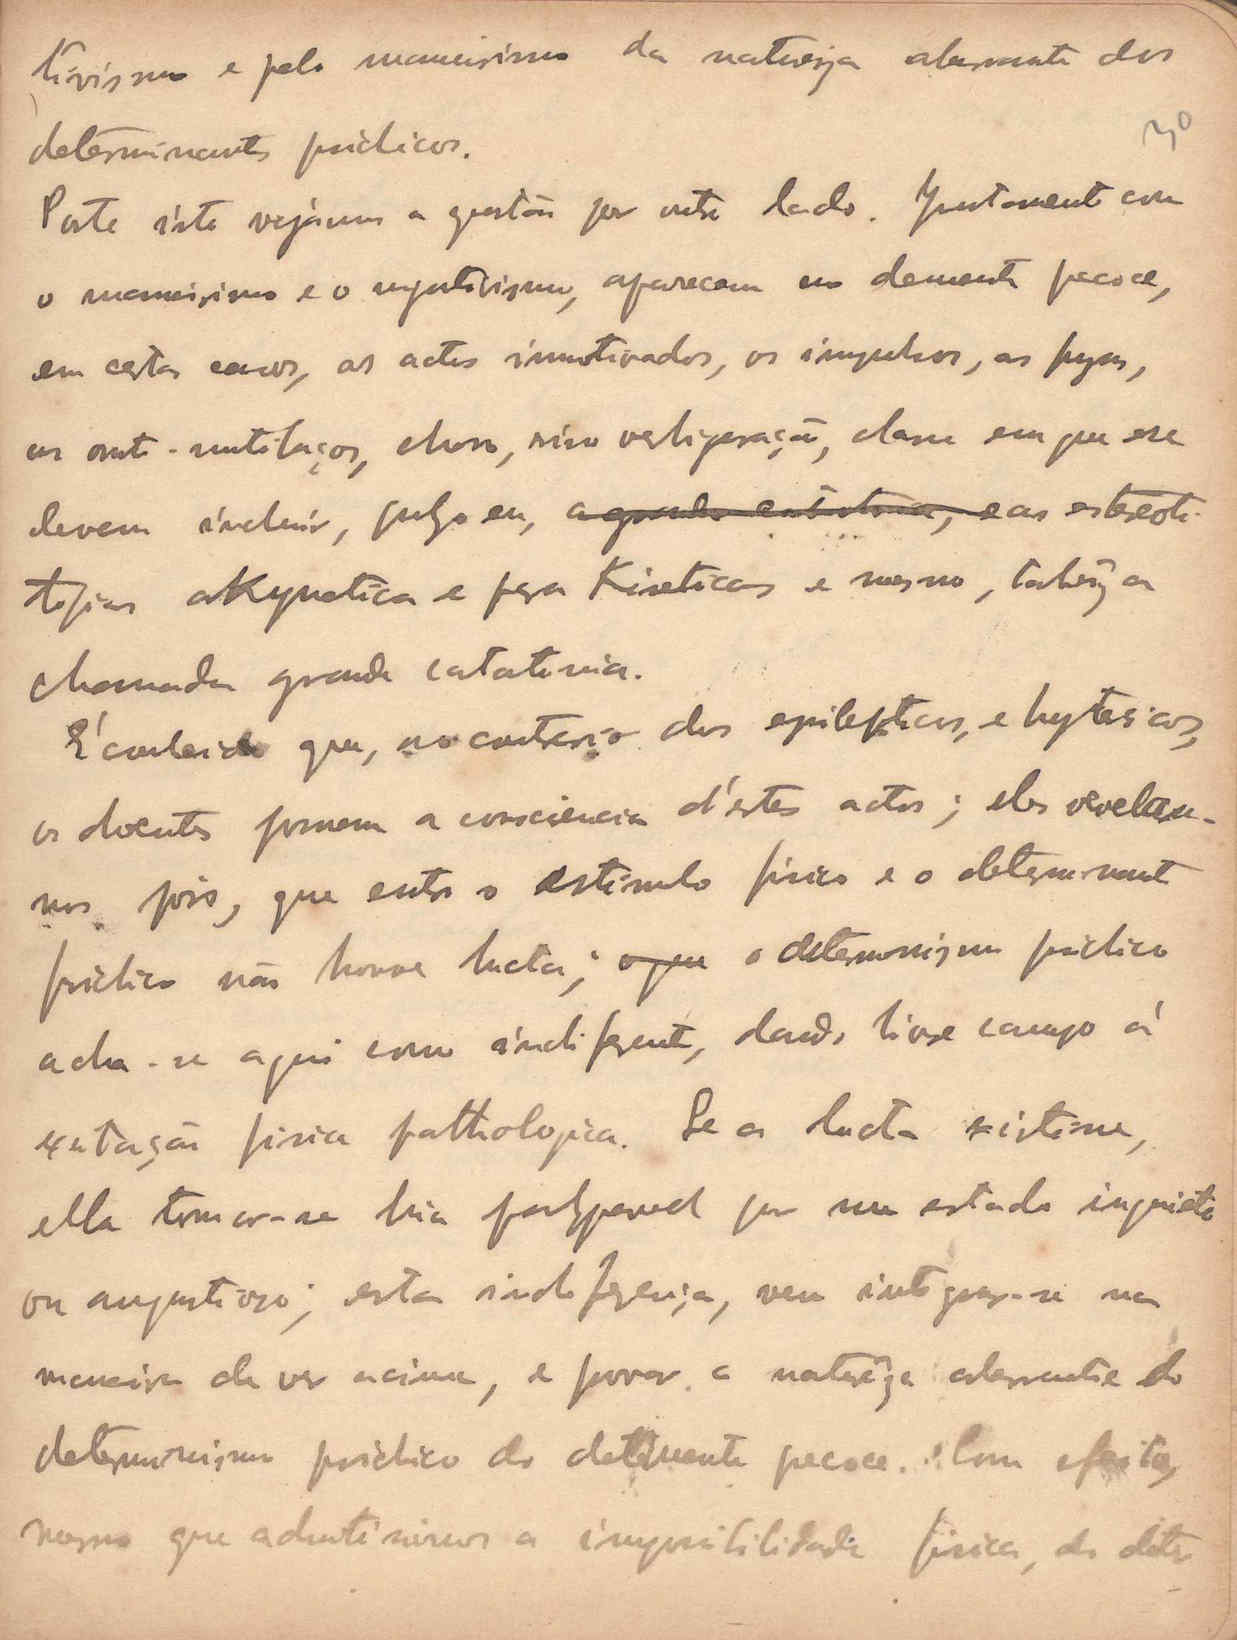 tivismo e pelo maneirismo da natureza aberrante dos
30
determinantes psichicos.
Posto isto vejâmos a questão por outro lado. Juntamente com
o maneirismo e o negativismo, aparecem no demente precoce,
em certos casos, os actos immotivados, os impulsos, as fugas,
as auto-mutilaços, choro, riso verbigeração, classe em que se
devem incluir, julgo eu, a grande catatonia, e as estereoti-
tipias akynetica e para Kineticas e mesmo, talvêz a
chamada grande catatonia.
É conhecido que, ao contrario dos epilepticos, e hystericos,
os doentes possuem a consciencia d'estes actos; eles revelam-
nos pois, que entre o estimulo fisico e o determinante
psichico não houve lucta; o que o determinismo psichico
acha-se aqui como indiferente, dando livre campo á
exitação fisica pathologica. Se a lucta existisse,
ella tornar-se hia perceptivel por um estado inquieto
ou angustioso; esta indeferença, vem integrar-se na
maneira de ver acima, e provar a naturêza aberrante do
determinismo psichico do demente precoce. Com efeito,
mesmo que admitissimos a impossibilidade fisica, do deter